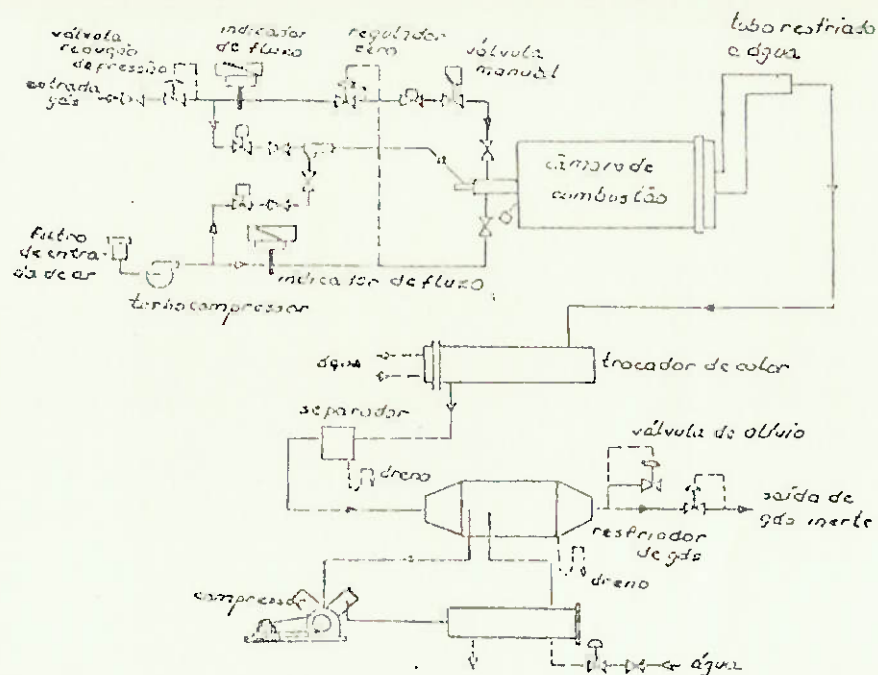 válvula
redução
de pressão
entrada
gás
indicador
de fluxo
regulador
zero
válvula
manual
tubo resfriado
a água
câmara de
combustão
filtro
de entra-
da de ar
turbocompressor
indicador de fluxo
água
trocador de calor
separador
dreno
válvula de alívio
saída de
gás inerte
resfriador
de gás
dreno
compressor
água